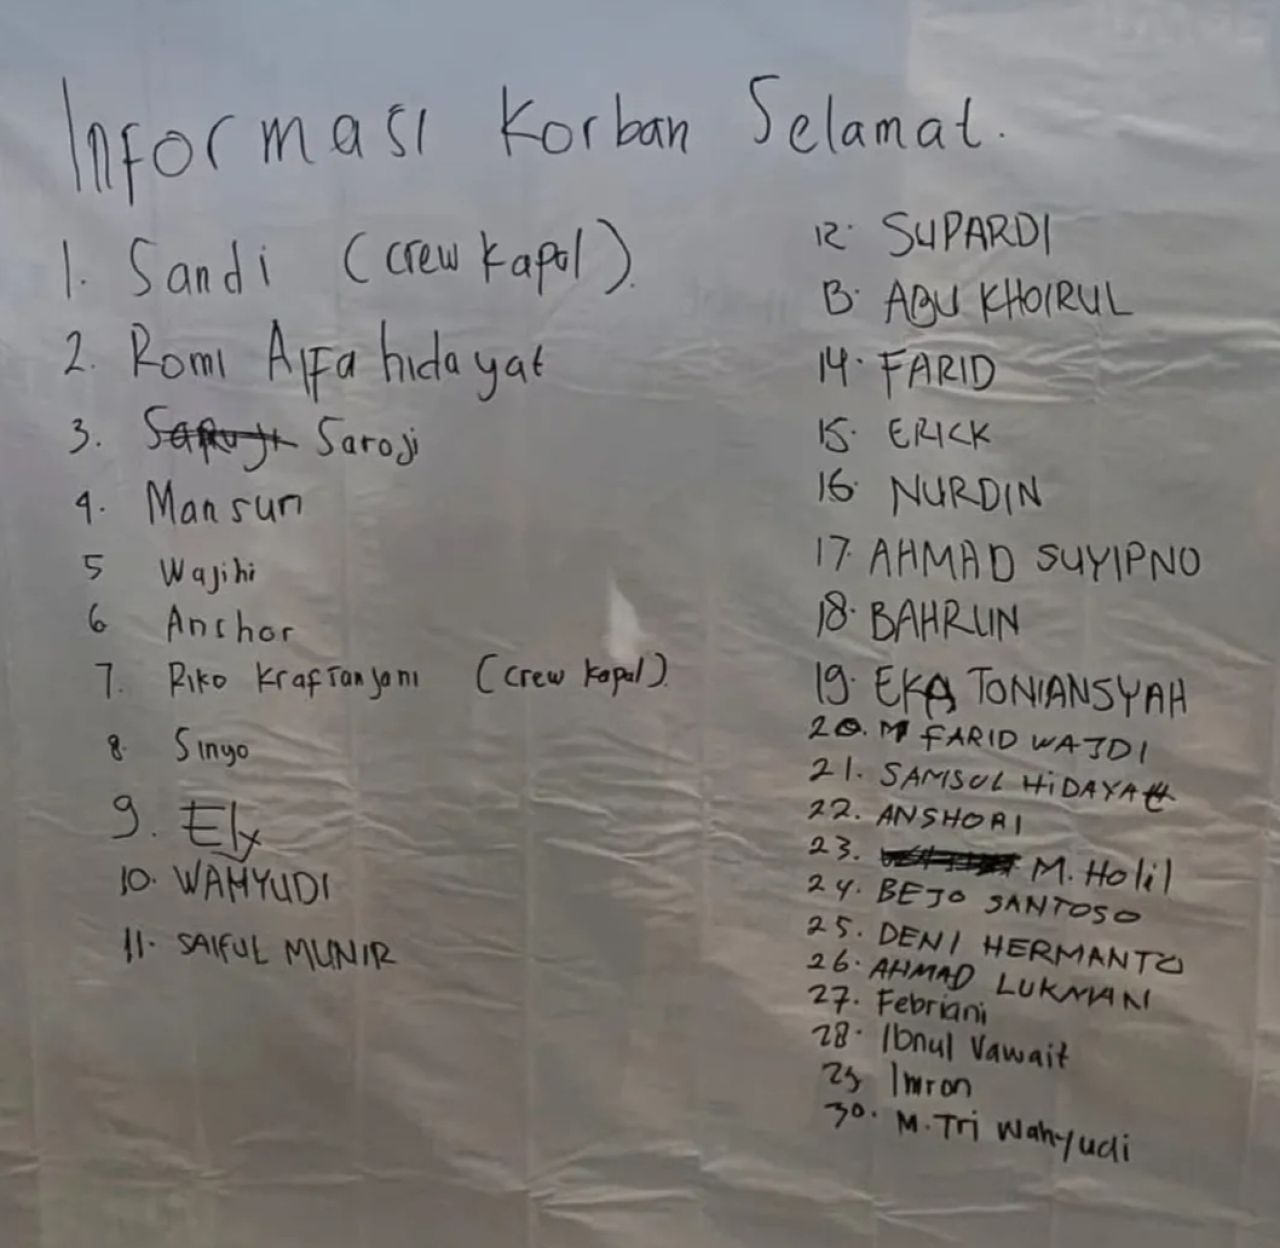 Informasi Korban Selamat.
1. Sandi (crew kapal).
2. Romi Alfa hidayat
3. Saroji
4. Mansun
5 Wajihi
6 Anchor
7. Riko Kraftanjani (crew kapal).
8. Sinyo
9. Ely
10. WAHYUDI
11. SAIFUL MUNIR
12. SUPARDI
13. ABU KHOIRUL
14. FARID
15. ERICK
16. NURDIN
17. AHMAD SUYIPNO
18. BAHRUN
19. EKA TONIANSYAH
20. M FARID WAJDI
21. SAMSUL HiDAYAt
22. ANSHORI
23. M. Holil
24. BEJO SANTOSO
25. DENI HERMANTO
26. AHMAD LUKMAN
27. Febriani
28. Ibnul Vawait
29 Imron
30. M. Tri Wahyudi